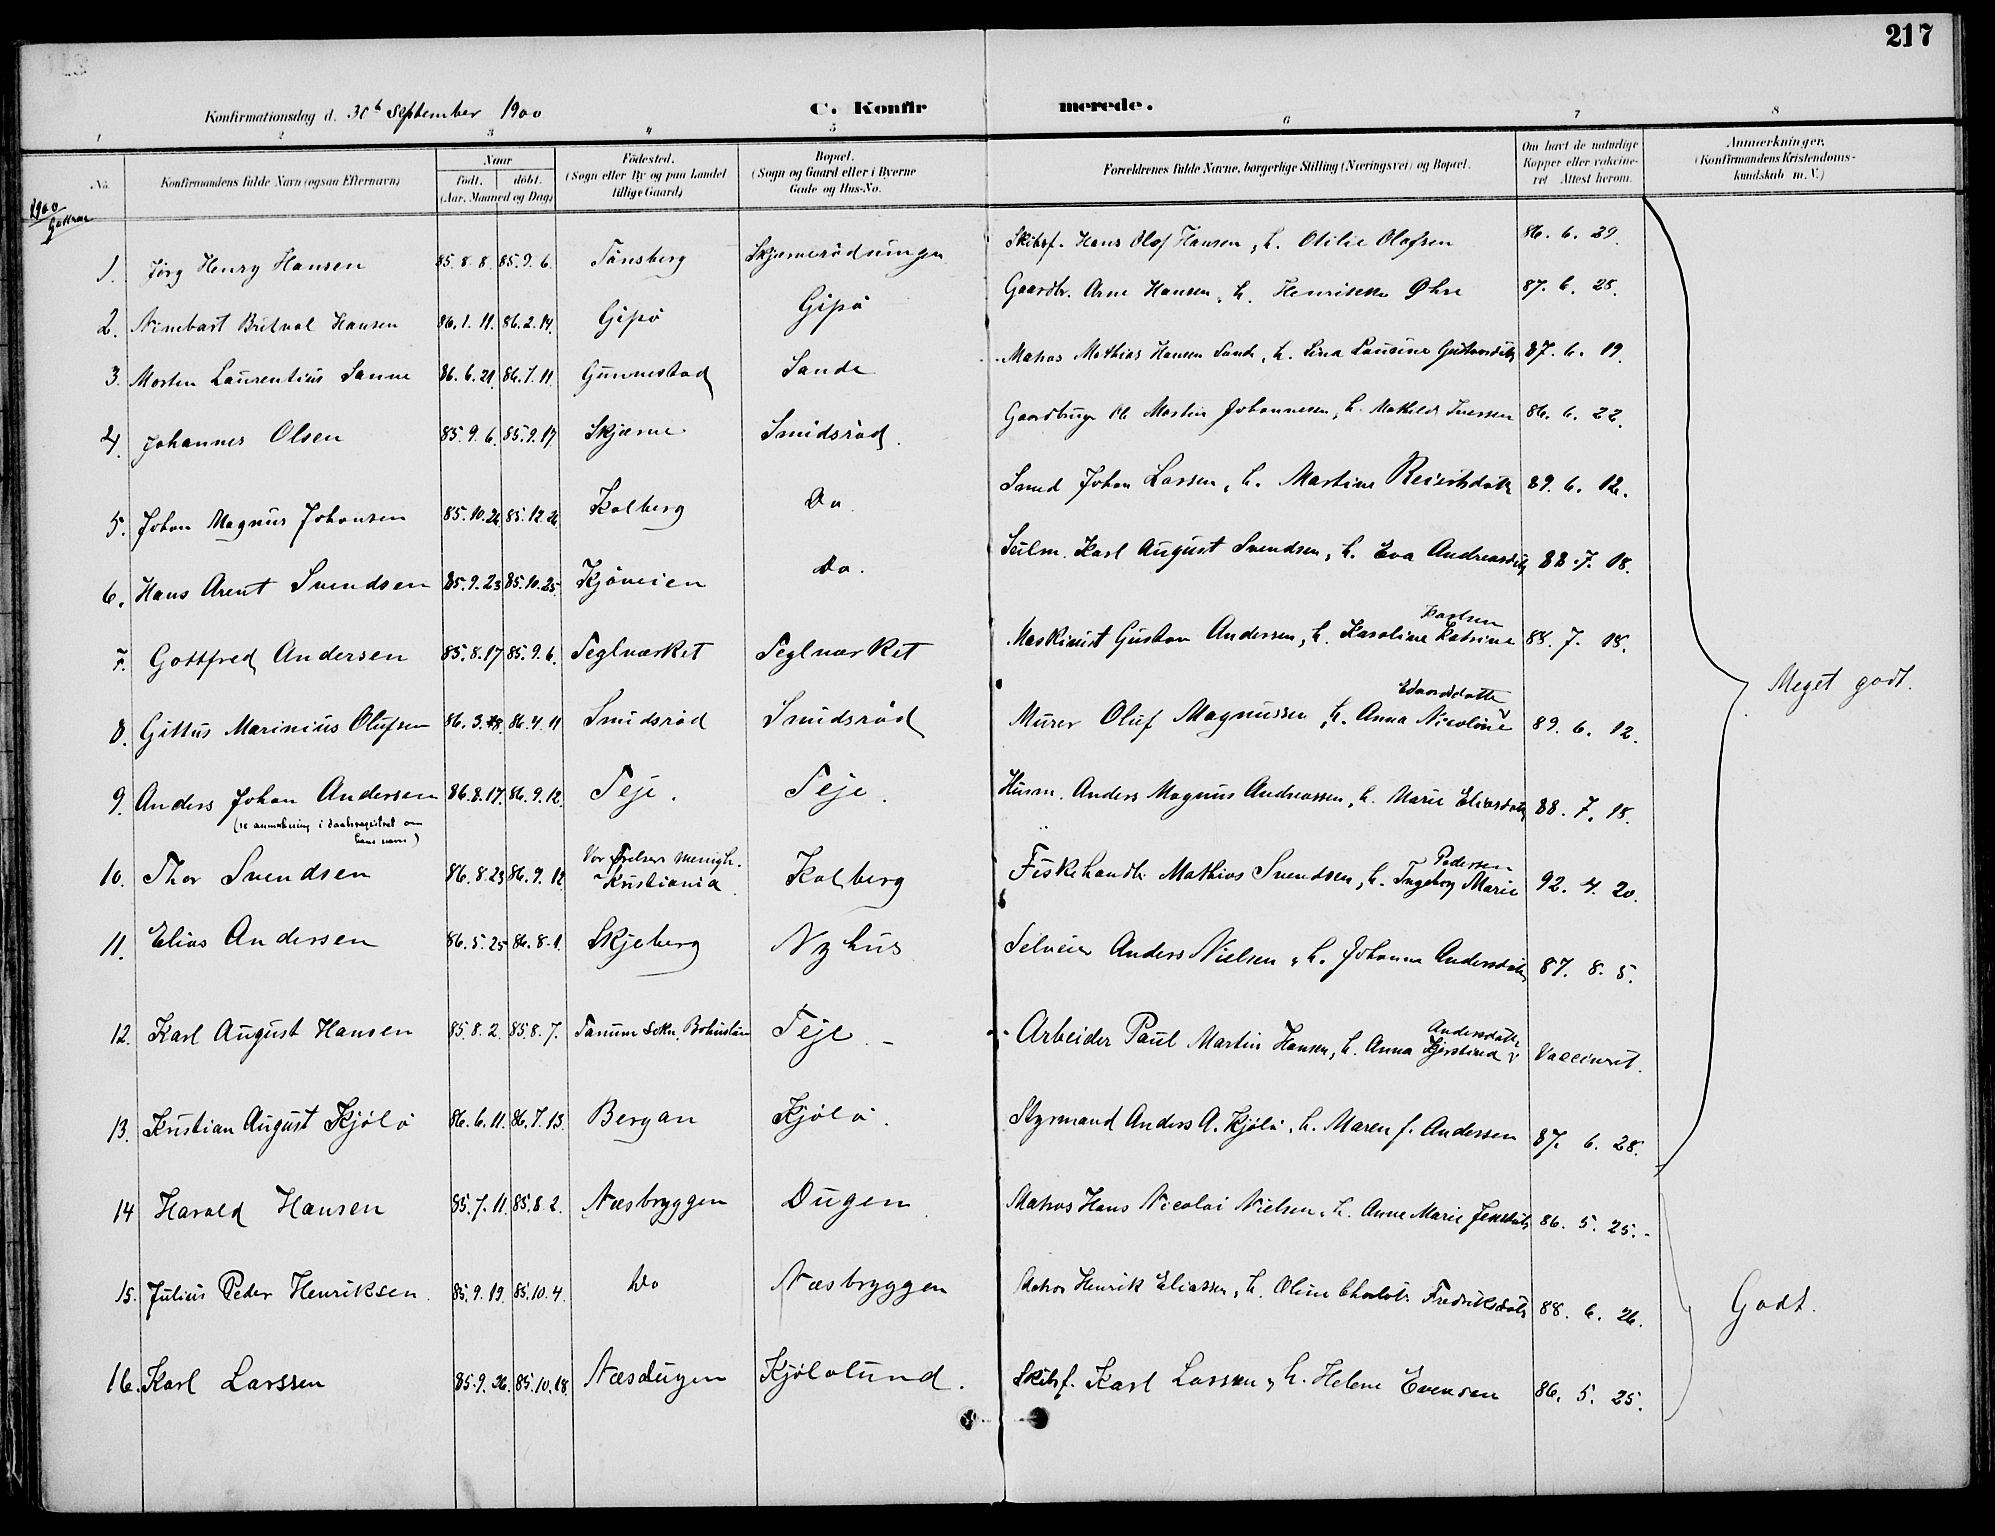 217
Konfirmationsdag d. 30t September 1900 C. Konfir merede.
1 2 3 4 5 6 7 8
No. Konfirmandens fulde Navn (ogsaa Efternavn) Naar født. døbt. (Aar, Maaned og Dag) Fødested. (Sogn eller By og paa Landet tillige Gaard) Bopæl. (Sogn og Gaard eller i Byerne Gade og Hus-No. Forældrenes fulde Navne, borgerlige Stilling (Næringsvei) og Bopæl. Om havt de naturlige Kopper eller vakcineret. Attest herom. Anmærkninger, (Konfirmandens Kristendomskundskab m. V.)
1900
Gutter
1. Jørg Henry Hansen 85.8.8. 85.9.6. Tønsberg Skibsf. Hans Olof Hansen, h. Otilie Olafsen 86. 6. 29.
2. Nimbart Britval Hansen 86.1.11. 86.2.14. Gipø Gipø Gaardbr. Arne Hansen, h. Henrikke Øhre 87. 6. 28.
3. Morten Laurentius Sanne 86.6.21. 86.7.11. Gunnestad Sande Matros Mathias Hansen Sande, h. Lina Laurine Gustavsdtr 87. 6. 19.
4. Johannes Olsen 85.9.6. 85.9.17 Skjærve Smidsrød. Gaardbruger Ole Martin Johannesen, h. Mathilde Iversen 86. 6. 22.
5. Johan Magnus Johansen 85.10.26 85.12.26 Kolberg Do. Smed Johan Larsen, h. Martine 89. 6. 12.
6. Hans Arent Svendsen 85.9.23 85.10.25. Kjøveien Do. Karl August Svendsen, h. Eva Andreasdtr 88. 7. 18.
7. Gottfred Andersen 85.8.17 85.9.6. Teglværket Teglværket Maskinist Gustav Andersen, h. Karoline Katrine Karlsen 88. 7. 18.
8. Gittus Marinius Olufsen 86.3. 86.4.11 Smidsrød Smidsrød Murer Oluf Magnussen, h. Anna Nicoline Edvardsdatter 89. 6. 12.
9. Anders Johan Andersen 86.8.17. 86.9.12. Teje. Teje. Husm. Anders Magnus Andreassen, h. Marie Eliasdatr 88. 7. 18.
(se anmerkning i daabsregistret om
hans navn)
10. Thor Svendsen 86.8.23 86.9.12 Vor Frelsers Menigh. Kristiania Kolberg Fiskehandler Mathias Svendsen, h. Ingeborg Marie Pedersen 92. 4. 20.
11. Elias Andersen 86.5.25 86.8.1. Skjeberg Nyhus Anders Nielsen, h. Johanne Andersdatr 87. 8. 5.
12. Karl August Hansen 85.8.2. 85.8.7. Tanum Sokn, Bohuslän Teje – Arbeider Paul Martin Hansen, h. Anna Kjerstina Andersdatter Vaccineret.
13. Kristian August Kjølø 86.6.11. 86.7.13. Bergan Kjølø. Styrmand Anders A. Kjølø, h. Maren f. Andersen 87. 6. 28.
Meget godt.
14 Harald Hansen 85.7.11. 85.8.2. Næsbryggen Dugen Matros Hans Nicolai Nielsen, h. Anne Marie Jensdatr 86. 5. 25.-
15. Julius Peder Henriksen. 85.9.19. 85.10.4. Do Næsbryggen Matros Henrik Eliassen, h. Oline Charlotte Fredriksdatr 88. 6. 26.
16. Karl Larssen 85.9.26. 85.10.18. Næsdugen Kjølølund. Skibsf. Karl Larssen, h. Helene Evensen 86. 5. 25.
Godt.